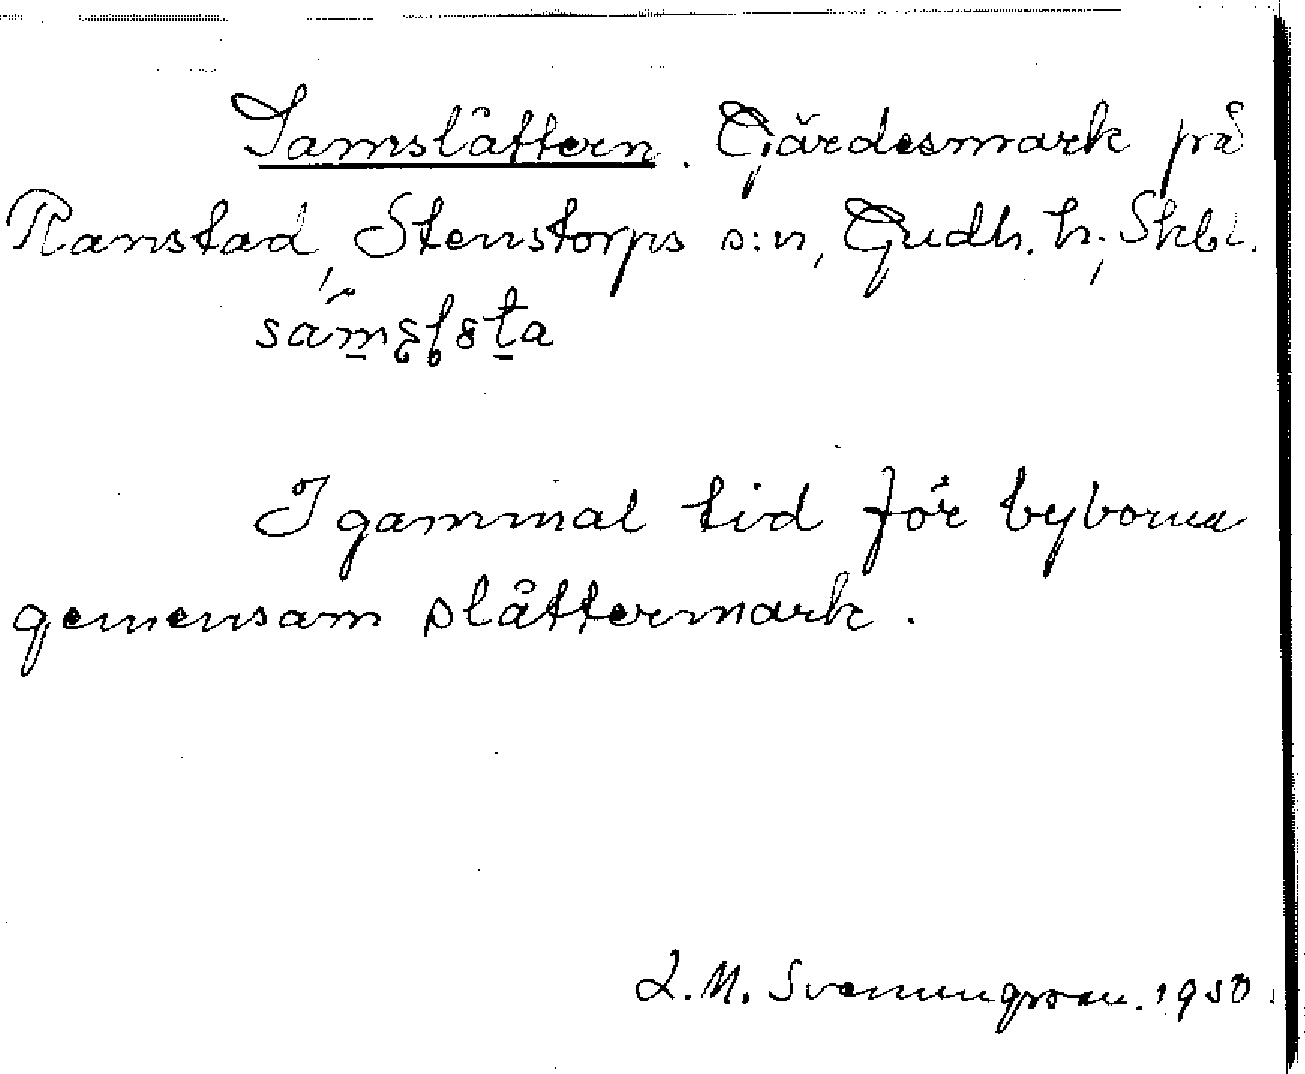 Samslåttern. Gärdesmark på
Ranstad, Stenstorps s:n, Gudh. h., Skbl.
I gammal tid för byborna
gemensam slåttermark.
L.M. Svenungsson. 1950.